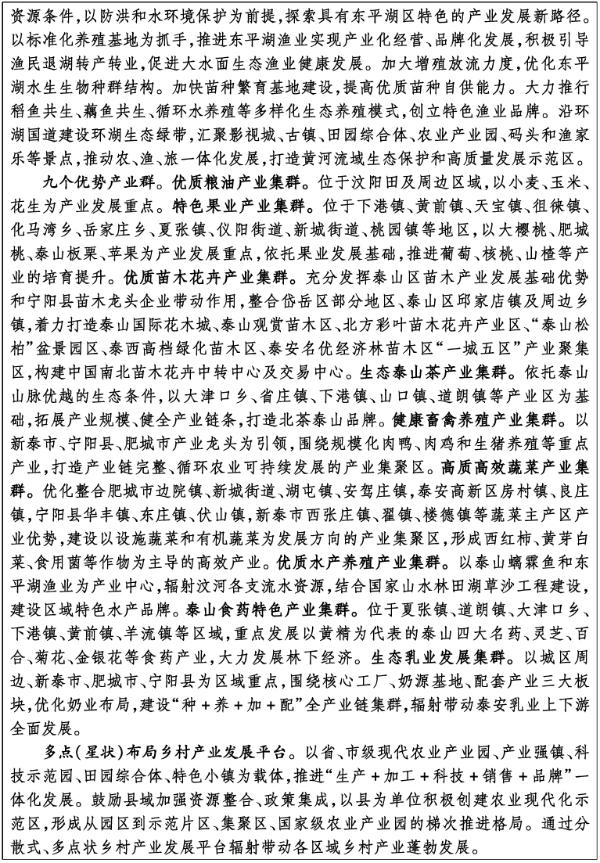 资源条件，以防洪和水环境保护为前提，探索具有东平湖区特色的产业发展新路径。
以标准化养殖基地为抓手，推进东平湖渔业实现产业化经营、品牌化发展，积极引导
渔民退湖转产转业，促进大水面生态渔业健康发展。加大增殖放流力度，优化东平
湖水生生物种群结构。加快苗种繁育基地建设，提高优质苗种自供能力。大力推行
稻鱼共生、藕鱼共生、循环水养殖等多样化生态养殖模式，创立特色渔业品牌。沿环
湖国道建设环湖生态绿带，汇聚影视城、古镇、田园综合体、农业产业园、码头和渔家
乐等景点，推动农、渔、旅一体化发展，打造黄河流域生态保护和高质量发展示范区。
九个优势产业群。优质粮油产业集群。位于汶阳田及周边区域，以小麦、玉米、
花生为产业发展重点。特色果业产业集群。位于下港镇、黄前镇、天宝镇、徂徕镇、
化马湾乡、岳家庄乡、夏张镇、仪阳街道、新城街道、桃园镇等地区，以大樱桃、肥城
桃、泰山板栗、苹果为产业发展重点，依托果业发展基础，推进葡萄、核桃、山楂等产
业的培育提升。优质苗木花卉产业集群。充分发挥泰山区苗木产业发展基础优势
和宁阳县苗木龙头企业带动作用，整合岱岳区部分地区、泰山区邱家店镇及周边乡
镇，着力打造泰山国际花木城、泰山观赏苗木区、北方彩叶苗木花卉产业区、“泰山松
柏”盆景园区、泰西高档绿化苗木区、泰安名优经济林苗木区“一城五区”产业聚集
区，构建中国南北苗木花卉中转中心及交易中心。生态泰山茶产业集群。依托泰山
山脉优越的生态条件，以大津口乡、省庄镇、下港镇、山口镇、道朗镇等产业区为基
础，拓展产业规模、健全产业链条，打造北茶泰山品牌。健康畜禽养殖产业集群。以
新泰市、宁阳县、肥城市产业龙头为引领，围绕规模化肉鸭、肉鸡和生猪养殖等重点
产业，打造产业链完整、循环农业可持续发展的产业集聚区。高质高效蔬菜产业集
群。优化整合肥城市边院镇、新城街道、湖屯镇、安驾庄镇，泰安高新区房村镇、良庄
镇，宁阳县华丰镇、东庄镇、伏山镇，新泰市西张庄镇、翟镇、楼德镇等蔬菜主产区产
业优势，建设以设施蔬菜和有机蔬菜为发展方向的产业集聚区，形成西红柿、黄芽白
菜、食用菌等作物为主导的高效产业。优质水产养殖产业集群。以泰山螭霖鱼和东
平湖渔业为产业中心，辐射汶河各支流水资源，结合国家山水林田湖草沙工程建设，
建设区域特色水产品牌。泰山食药特色产业集群。位于夏张镇、道朗镇、大津口乡、
下港镇、黄前镇、羊流镇等区域，重点发展以黄精为代表的泰山四大名药、灵芝、百
合、菊花、金银花等食药产业，大力发展林下经济。生态乳业发展集群。以城区周
边、新泰市、肥城市、宁阳县为区域重点，围绕核心工厂、奶源基地、配套产业三大板
块，优化奶业布局，建设“种+养+加+配”全产业链集群，辐射带动泰安乳业上下游
全面发展。
多点（星状）布局乡村产业发展平台。以省、市级现代农业产业园、产业强镇、科
技示范园、田园综合体、特色小镇为载体，推进“生产+加工+科技+销售+品牌”一
体化发展。鼓励县域加强资源整合、政策集成，以县为单位积极创建农业现代化示
范区，形成从园区到示范片区、集聚区、国家级农业产业园的梯次推进格局。通过分
散式、多点状乡村产业发展平台辐射带动各区域乡村产业蓬勃发展。